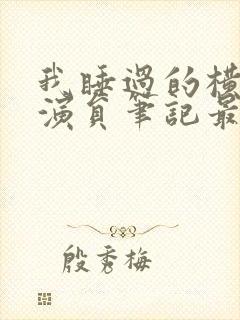 我睡過的橫
演員筆記最
殷秀梅